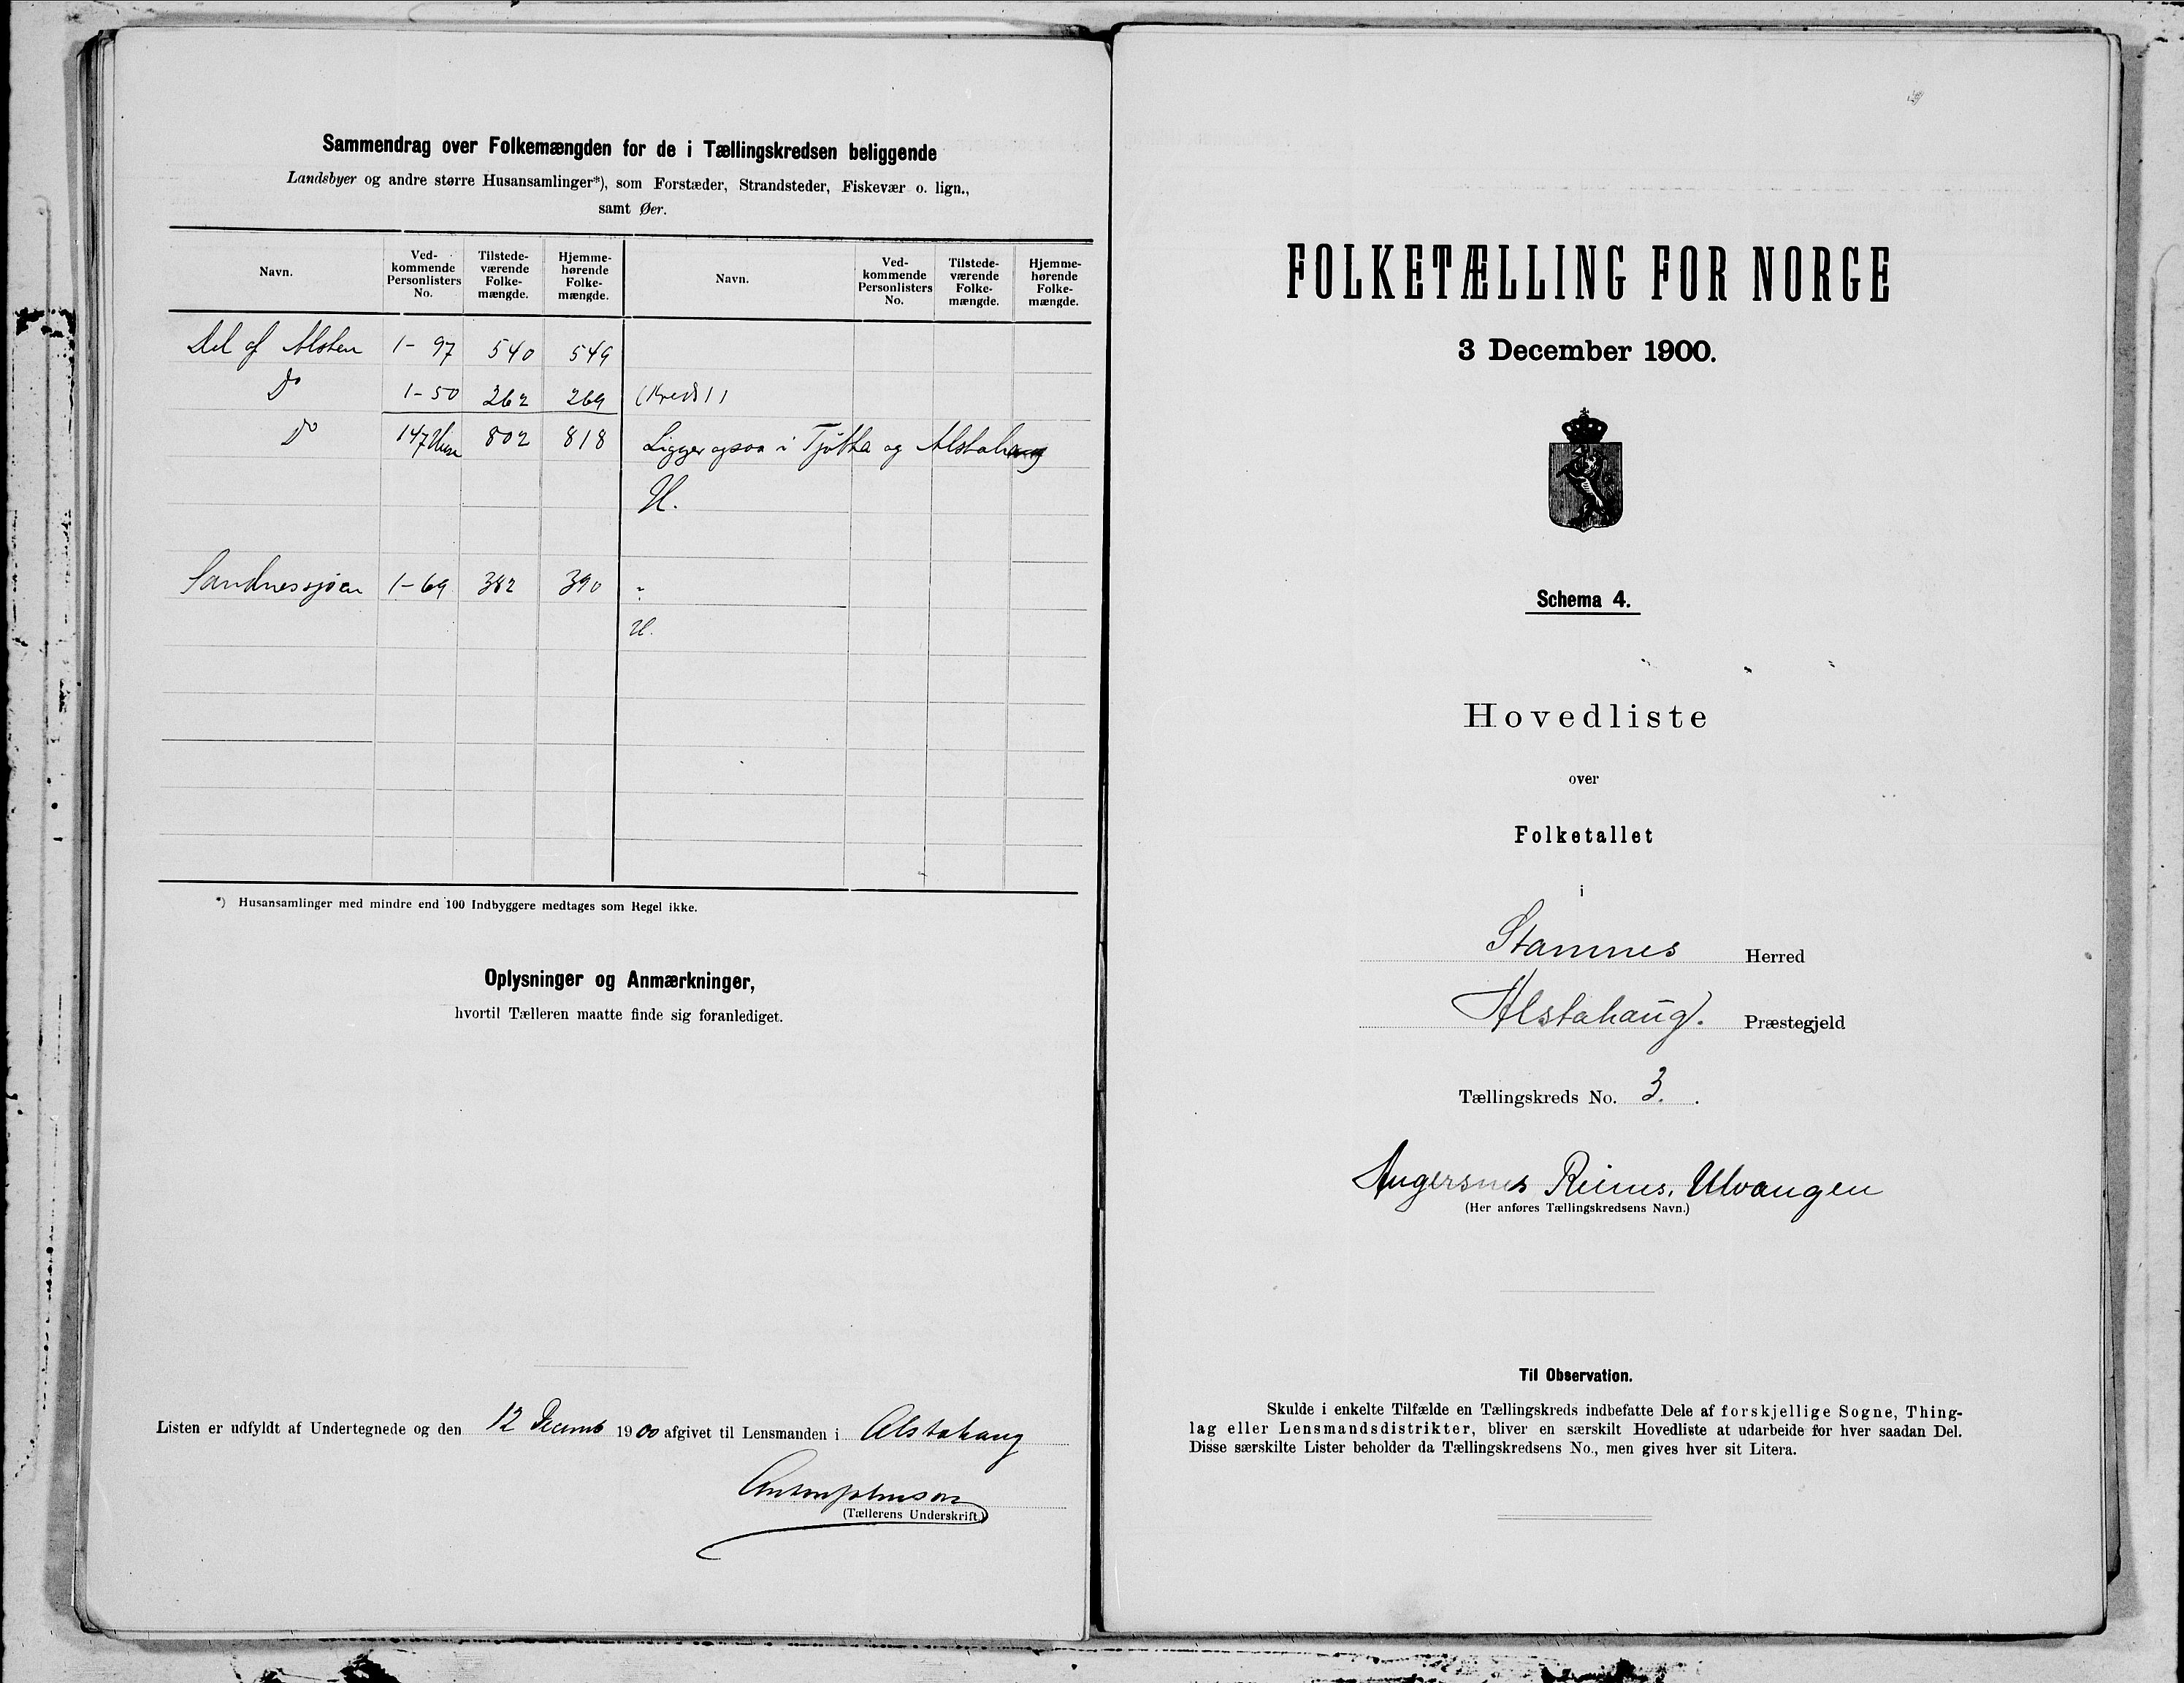 Sammendrag over Folkemængden for de i Tællingskredsen beliggende
Landsbyer og andre større Husansamlinger*), som Forstæder, Strandsteder, Fiskevær o. lign.,
samt Øer.
Navn. Ved-kommende Personlisters No. Tilstede-værende Folke-mængde. Hjemme-hørende Folke-mængde. Navn. Ved-kommende Personlisters No. Tilstede-værende Folke-mængde. Hjemme-hørende Folke-mængde.
Del af Alsten 1-97 540 549
Do 1-50 262 269 (Kreds 1)
Do 147 Huse 802 818 Ligger ogsaa i Tjøtta og Alstahaug
H.
Sandnessjøen 1-69 382 390 "
H.
*) Husansamlinger med mindre end 100 Indbyggere medtages som Regel ikke.
Oplysninger og Anmærkninger,
hvortil Tælleren maatte finde sig foranlediget.
Listen er udfyldt af Undertegnede og den 12 Decemb 1900 afgivet til Lensmanden i Alstahaug
Anton Johnson
(Tællerens Underskrift.)
FOLKETÆLLING FOR NORGE
3 December 1900.
Schema 4.
Hovedliste
over
Folketallet
i
Stamnes Herred
Alstahaug. Præstegjeld
Tællingskreds No. 3.
Angersnes Reines, Ulvangen
(Her anføres Tællingskredsens Navn.)
Til Observation.
Skulde i enkelte Tilfælde en Tællingskreds indbefatte Dele af forskjellige Sogne, Thing-
lag eller Lensmandsdistrikter, bliver en særskilt Hovedliste at udarbeide for hver saadan Del.
Disse særskilte Lister beholder da Tællingskredsens No., men gives hver sit Litera.